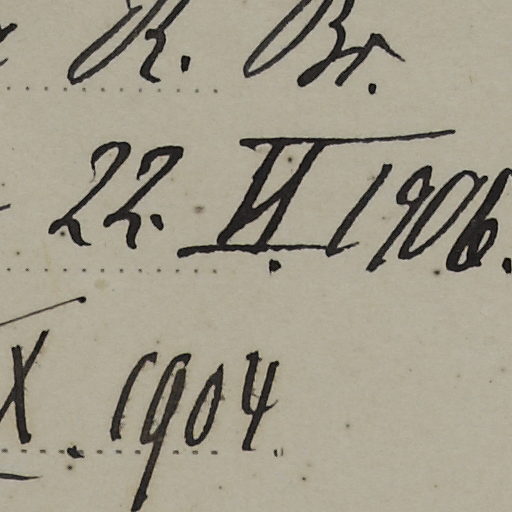 R. Br.
22. VI. 1906.
X. 1904